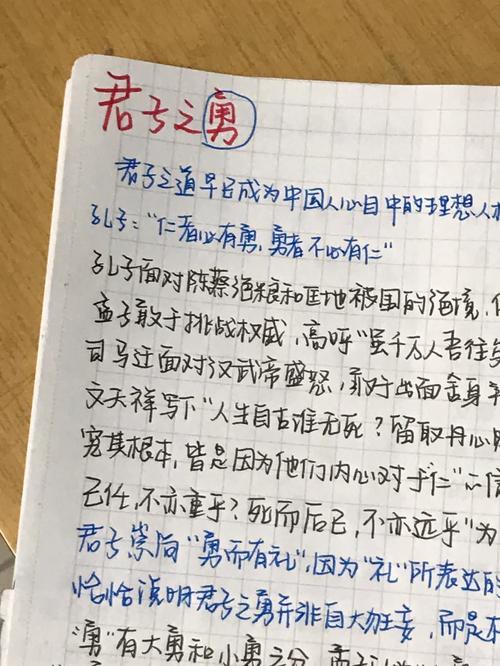 君子之勇
君子之道早已成为中国人心目中的理想人格
孔子：“仁者必有勇，勇者不必有仁”
孔子面对陈蔡绝粮和匡地被围的绝境，
孟子敢于挑战权威，高呼“虽千万人吾往矣
司马迁面对汉武帝盛怒，敢于出面
文天祥写下“人生自古谁无死？留取丹心照
究其根本，皆是因为他们内心对于“仁”的信
己任，不亦重乎？死而后已，不亦远乎”为
君子崇尚“勇而有礼”，因为“礼”所表达的
恰恰说明君子之勇并非自大狂妄，而是
“勇”有大勇和小勇之分，孟子